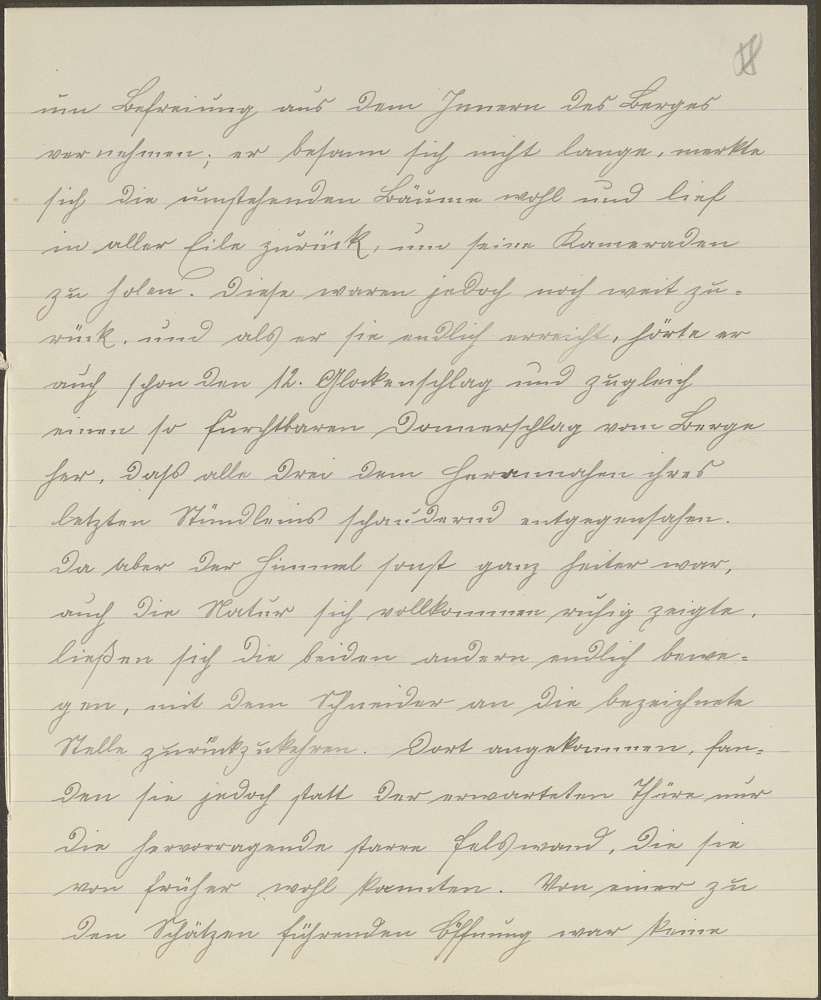 um Befreiung aus dem Innern des Berges
vernehmen; er besann sich nicht lange, merkte
sich die umstehenden Bäume wohl und lief
in aller Eile zurück, um seine Kameraden
zu holen. Diese waren jedoch noch weit zu-
rück, und als er sie endlich erreicht, hörte er
auch schon den 12. Glockenschlag und zugleich
einen so furchtbaren Donnerschlag vom Berge
her, daß alle drei dem Herannahen ihres
letzten Stündleins schaudernd entgegensahen.
Da aber der Himmel sonst ganz heiter war,
auch die Natur sich vollkommen ruhig zeigte,
ließen sich die beiden andern endlich bewe-
gen, mit dem Schneider an die bezeichnete
Stelle zurückzukehren. Dort angekommen, fan-
den sie jedoch statt der erwarteten Thüre nur
die hervorragende starre Felswand, die sie
von früher wohl kannten. Von einer zu
den Schätzen führenden Öffnung war keine